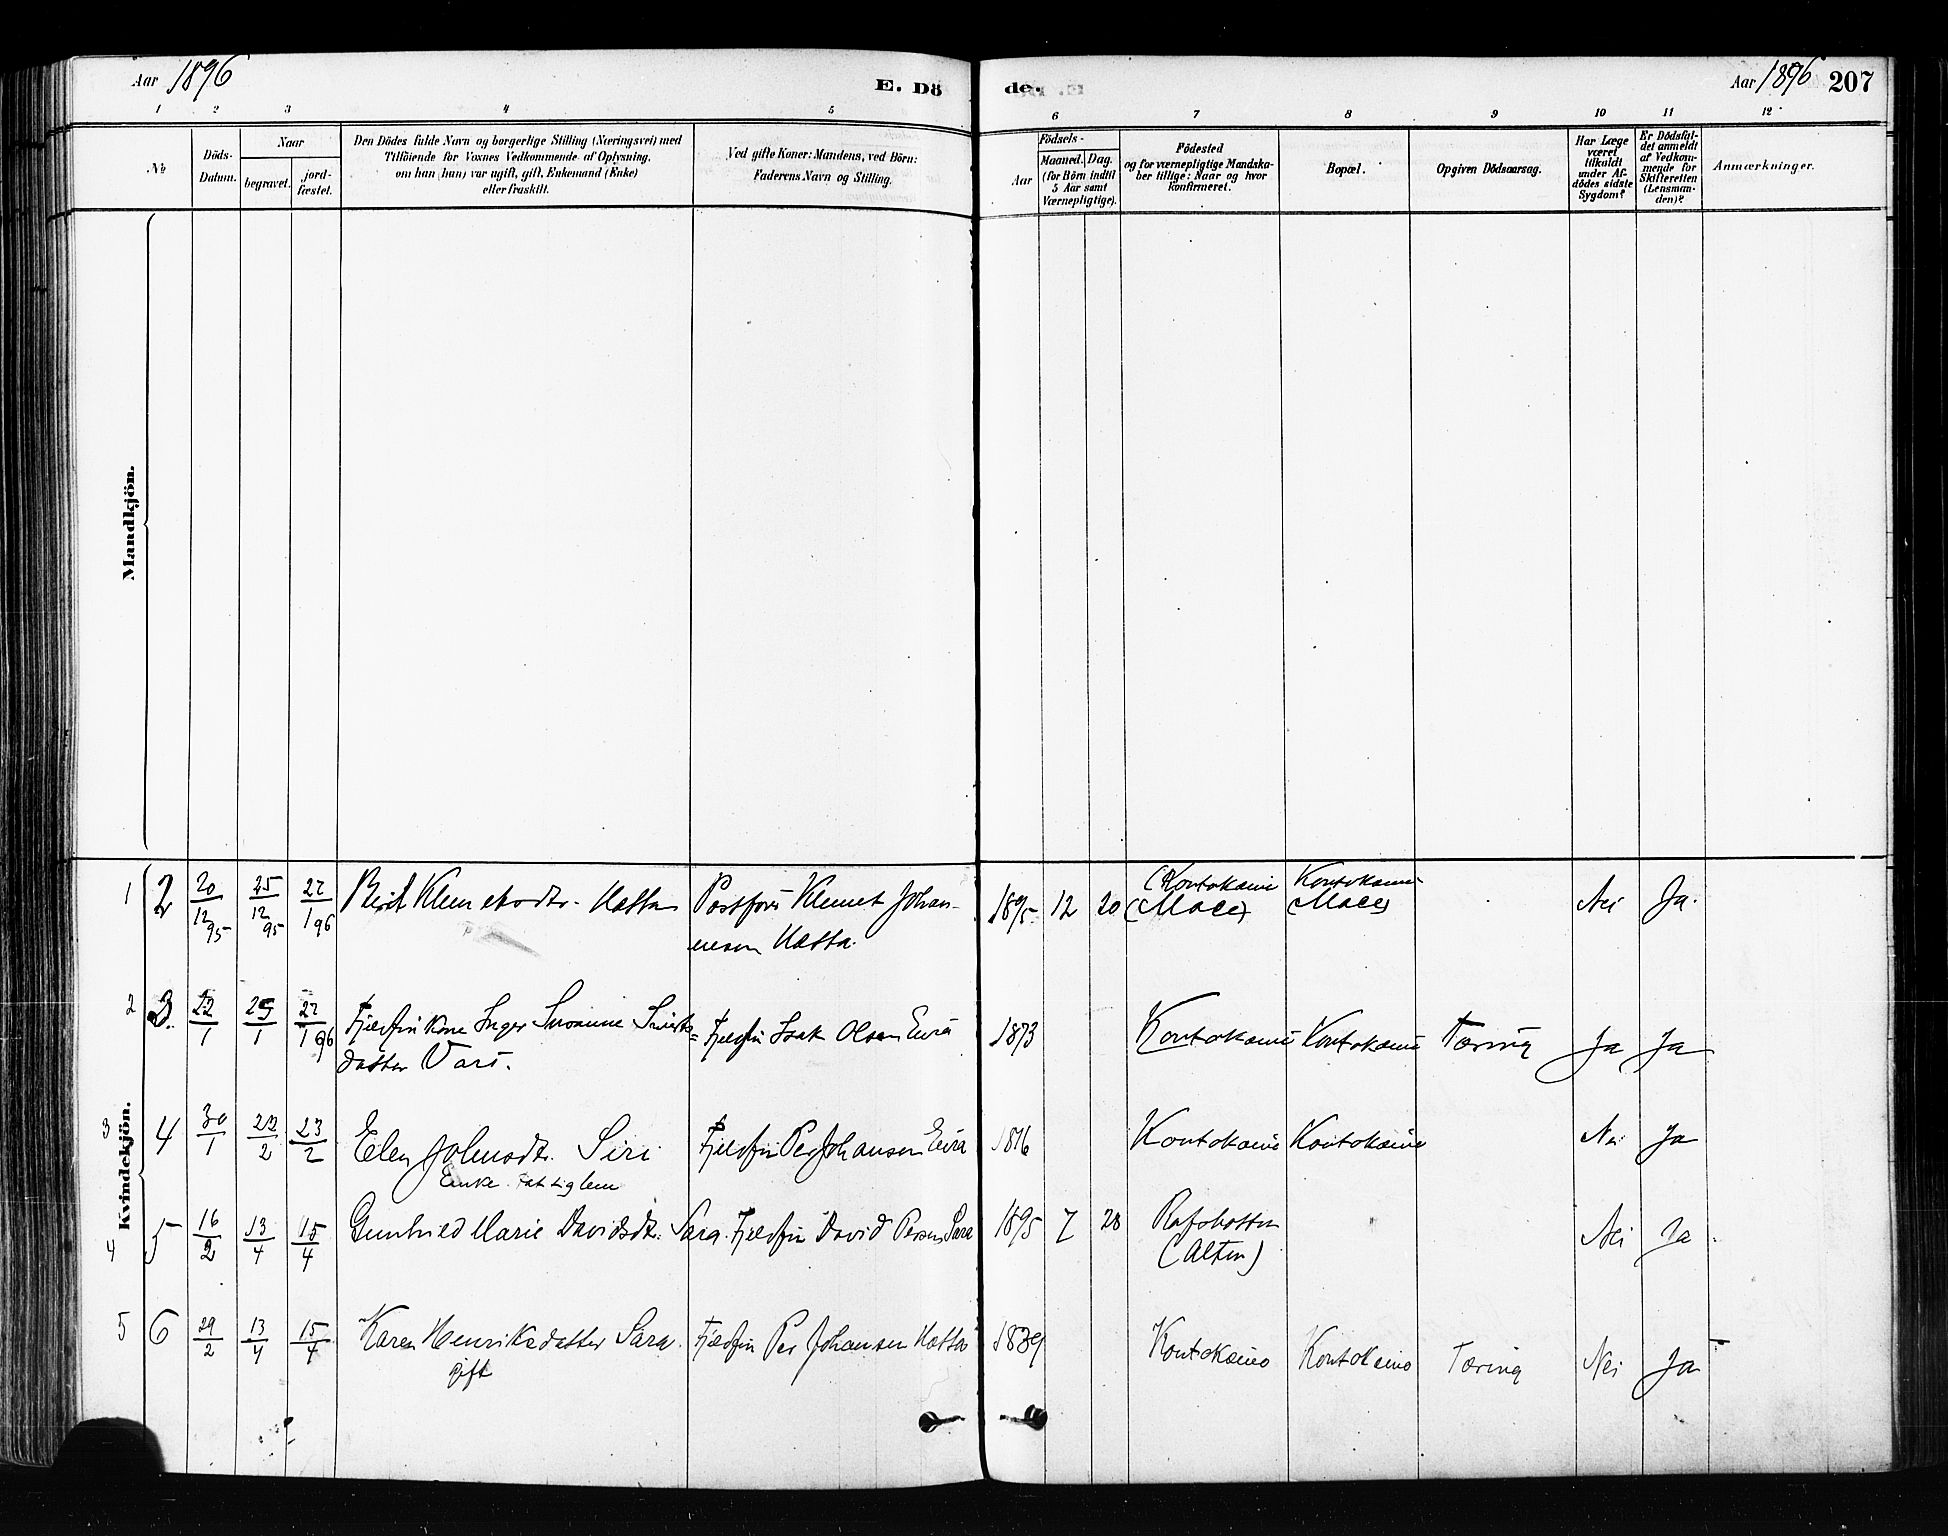 Aar 1896
E. Dö
de.
Aar 1896 207
1 2 3 4 5 6 7 8 9 10 11 12
No
Döds-
Datum.
Naar
begravet.
jord-
fæstet.
Den Dödes fulde Navn og borgerlige Stilling (Næringsvei) med
Tilföiende for Voxnes Vedkommende af Oplysning,
om han (hun) var ugift, gift, Enkemand (Enke)
eller fraskilt.
Ved gifte Koner: Mandens, ved Börn:
Faderens Navn og Stilling.
Födsels-
Aar
Maaned. Dag.
(for Börn indtil
5 Aar samt
Værnepligtige).
Födested
og for værnepligtige Mandska-
ber tillige: Naar og hvor
konfirmeret.
Bopæl.
Opgiven Dödsaarsag.
Har Læge
været
tilkaldt
under Af-
dödes sidste
Sygdom?
Er Dödsfal-
det anmeldt
af Vedkom-
mende for
Skifteretten
(Lensman-
den)?
Anmærkninger.
Mandkjön.
Kvindekjön.
1 2 20/12 95 25/12 95 22/1 96 Berit Klemetsdtr. Hætta Klemet Johan- 1895 12 20 (Kautokeino Kautokeino Nei Ja.
nesen Hætta. (Mace) (Mace)
2 3. 22/1 25/1 22/1 96 Fjeldfin Kone Inger Susanne = Fjeldfin Isak Olsen Eira 1873 Kautokeino Kautokeino Tæring Ja Ja
datter Vars.
3 4 30/1 22/2 23/2 Elen Johnsdtr. Siri Fjeldfin Per Johansen Eira 1816 Kautokeino Kautokeino Nei Ja
Enke. Fattiglem
4 5 16/2 13/4 15/4 Gunhild Marie Davidsdtr. Sara. Fjeldfin David Persen Sara 1895 7 28 Rafsbotten Nei Ja
(Alten)
5 6 29/2 13/4 15/4 Karen Henriksdatter Sara. Fjeldfin Per Johansen Hætta 1839 Kautokeino Kautokeino Tæring Nei Ja
gift